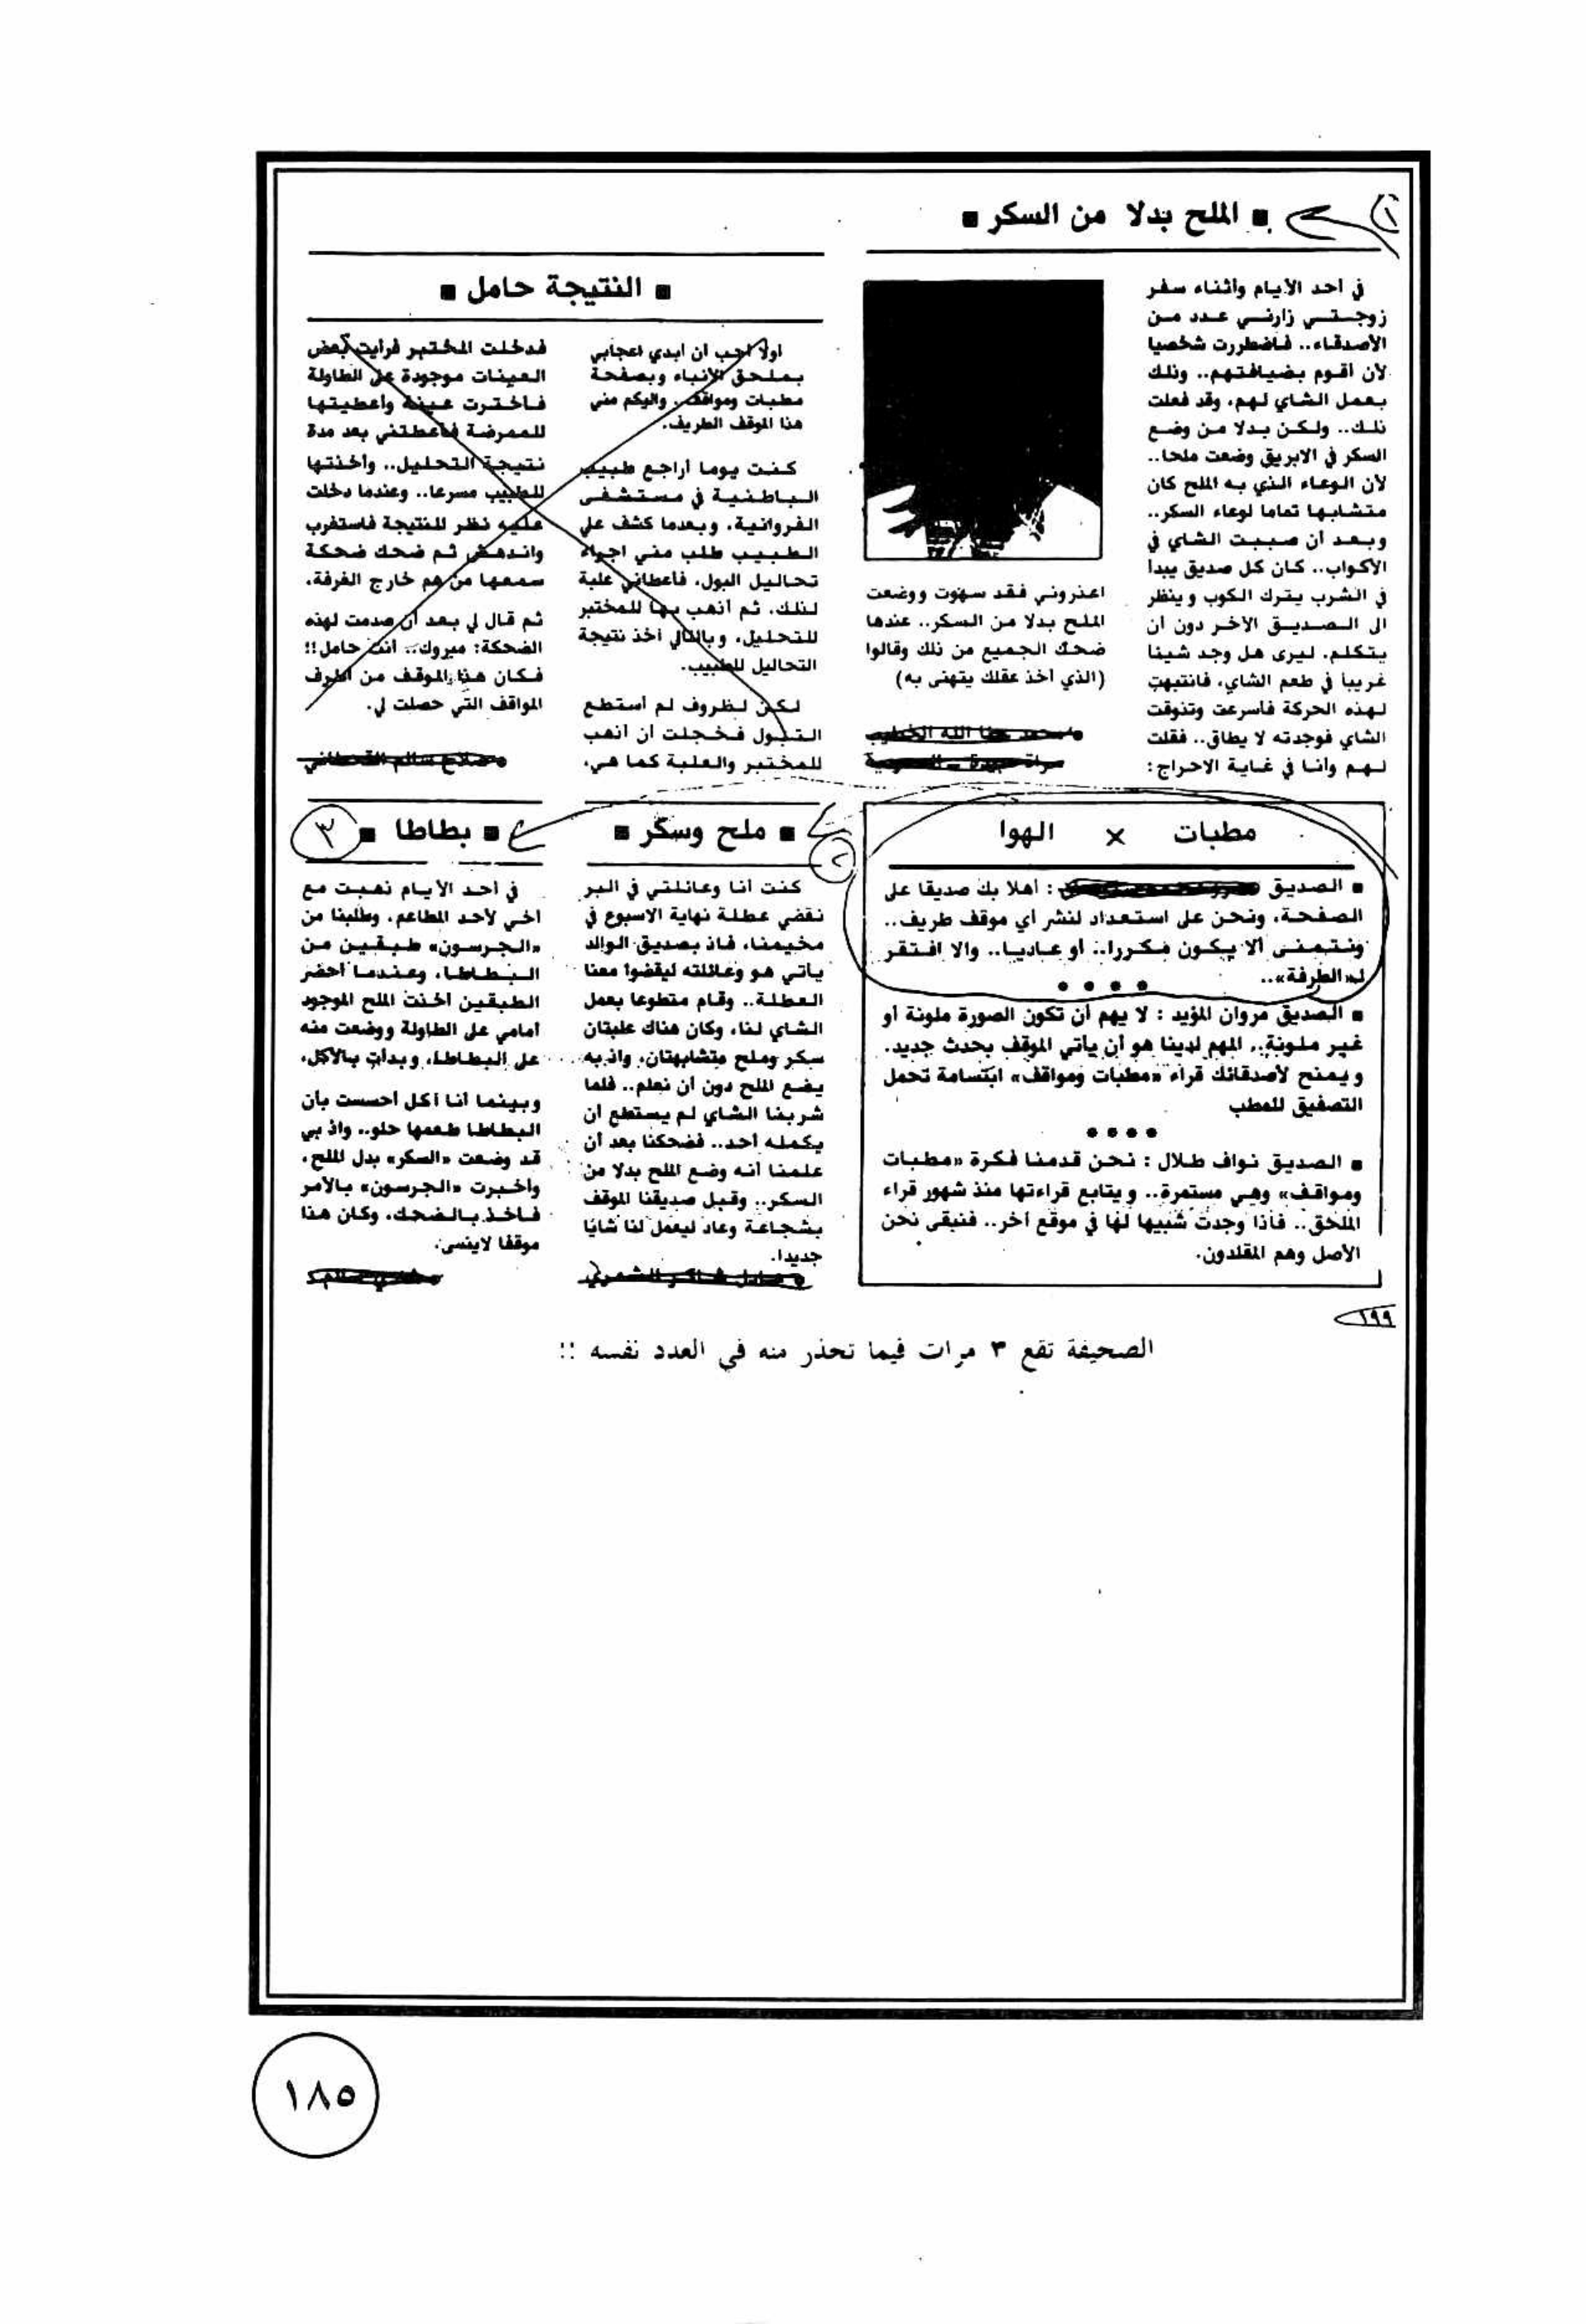 ١
■ الملح بدلا من السكر ■
في أحد الأيام وأثناء سفر
زوجتي زارني عدد من
الأصدقاء.. فاضطررت شخصيا
لأن أقوم بضيافتهم.. وذلك
بعمل الشاي لهم، وقد فعلت
ذلك.. ولكن بدلا من وضع
السكر في الابريق وضعت ملحا..
لأن الوعاء الذي به الملح كان
متشابها تماما لوعاء السكر..
وبعد أن صببت الشاي في
الأكواب.. كان كل صديق يبدأ
في الشرب يترك الكوب وينظر
الى الصديق الآخر دون أن
يتكلم، ليرى هل وجد شيئا
غريبا في طعم الشاي، فانتبهت
لهذه الحركة فأسرعت وتذوقت
الشاي فوجدته لا يطاق.. فقلت
لهم وأنا في غاية الاحراج:
اعذروني فقد سهوت ووضعت
الملح بدلا من السكر.. عندها
ضحك الجميع من ذلك وقالوا
(الذي أخذ عقلك يتهنى به)
■ النتيجة حامل ■
أولا أحب أن أبدي اعجابي
بملحق الأنباء وبصفحة
مطبات ومواقف، واليكم مني
هذا الموقف الطريف.
كنت يوما أراجع طبيب
الباطنية في مستشفى
الفروانية، وبعدما كشف علي
الطبيب طلب مني اجراء
تحاليل البول، فأعطاني علبة
لذلك، ثم أذهب بها للمختبر
للتحليل، وبالتالي آخذ نتيجة
التحاليل للطبيب.
لكن لظروف لم أستطع
التبول فخجلت أن أذهب
للمختبر والعلبة كما هي،
فدخلت المختبر فرأيت بعض
العينات موجودة على الطاولة
فاخترت عينة وأعطيتها
للممرضة فأعطتني بعد مدة
نتيجة التحليل.. وأخذتها
للطبيب مسرعا.. وعندما دخلت
عليه نظر للنتيجة فاستغرب
واندهش ثم ضحك ضحكة
سمعها من هم خارج الغرفة،
ثم قال لي بعد أن صدمت لهذه
الضحكة: مبروك.. أنت حامل!!
فكان هذا الموقف من أطرف
المواقف التي حصلت لي.
مطبات × الهوا
■ الصديق : أهلا بك صديقا على
الصفحة، ونحن على استعداد لنشر أي موقف طريف..
ونتمنى ألا يكون مكررا.. أو عاديا.. والا افتقر
لـ«الطرفة»..
●●●●
■ الصديق مروان المؤيد : لا يهم أن تكون الصورة ملونة أو
غير ملونة.. المهم لدينا هو أن يأتي الموقف بحدث جديد.
ويمنح لأصدقائك قراء «مطبات ومواقف» ابتسامة تحمل
التصفيق للمطب
●●●●
■ الصديق نواف طلال : نحن قدمنا فكرة «مطبات
ومواقف» وهي مستمرة.. ويتابع قراءتها منذ شهور قراء
الملحق.. فاذا وجدت شبيها لها في موقع آخر.. فنبقى نحن
الأصل وهم المقلدون.
٢
■ ملح وسكر ■
كنت أنا وعائلتي في البر
نقضي عطلة نهاية الاسبوع في
مخيمنا، فاذ بصديق الوالد
يأتي هو وعائلته ليقضوا معنا
العطلة.. وقام متطوعا بعمل
الشاي لنا، وكان هناك علبتان
سكر وملح متشابهتان، واذ به
يضع الملح دون أن نعلم.. فلما
شربنا الشاي لم يستطع أن
يكمله أحد.. فضحكنا بعد أن
علمنا أنه وضع الملح بدلا من
السكر.. وقبل صديقنا الموقف
بشجاعة وعاد ليعمل لنا شايا
جديدا.
■ بطاطا ■
٣
في أحد الأيام ذهبت مع
أخي لأحد المطاعم، وطلبنا من
«الجرسون» طبقين من
البطاطا، وعندما أحضر
الطبقين أخذت الملح الموجود
أمامي على الطاولة ووضعت منه
على البطاطا، وبدأت بالأكل،
وبينما أنا آكل أحسست بأن
البطاطا طعمها حلو.. واذ بي
قد وضعت «السكر» بدل الملح،
وأخبرت «الجرسون» بالأمر
فأخذ بالضحك، وكان هذا
موقفا لاينسى.
١٩٩
الصحيفة تقع ٣ مرات فيما تحذر منه في العدد نفسه !!
١٨٥